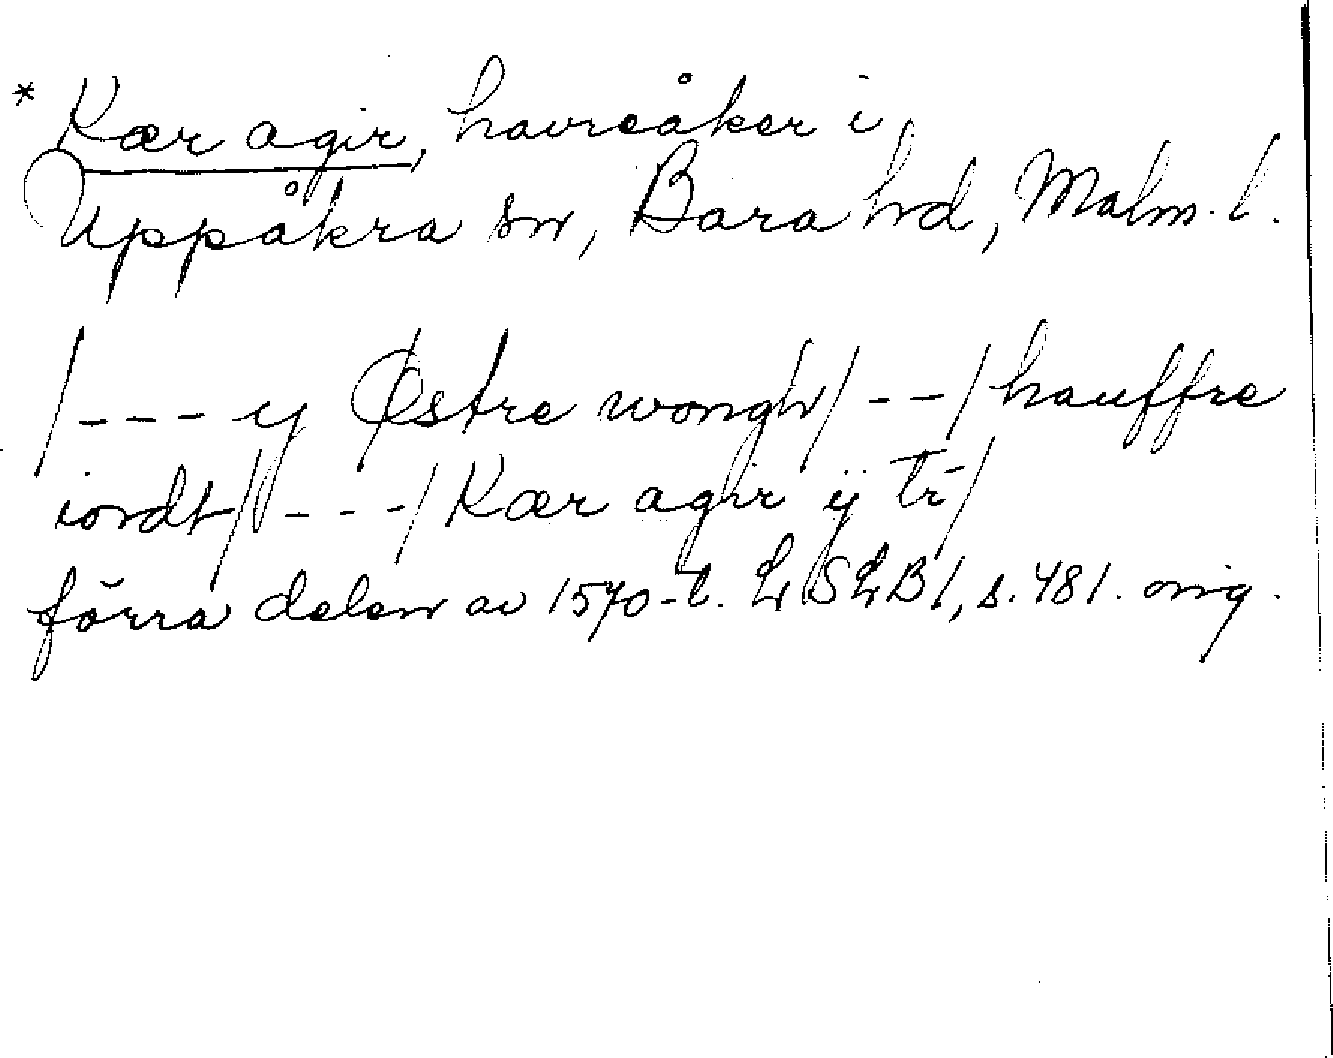 * Kær agir, havreåker i
Uppåkra sn, Bara hd, Malm. l.
/--- y Østre wongh/--/hauffre
iordt/---/Kær agir ÿ tr/
förra delen av 1570-t. LSLB 1, s. 481. orig.